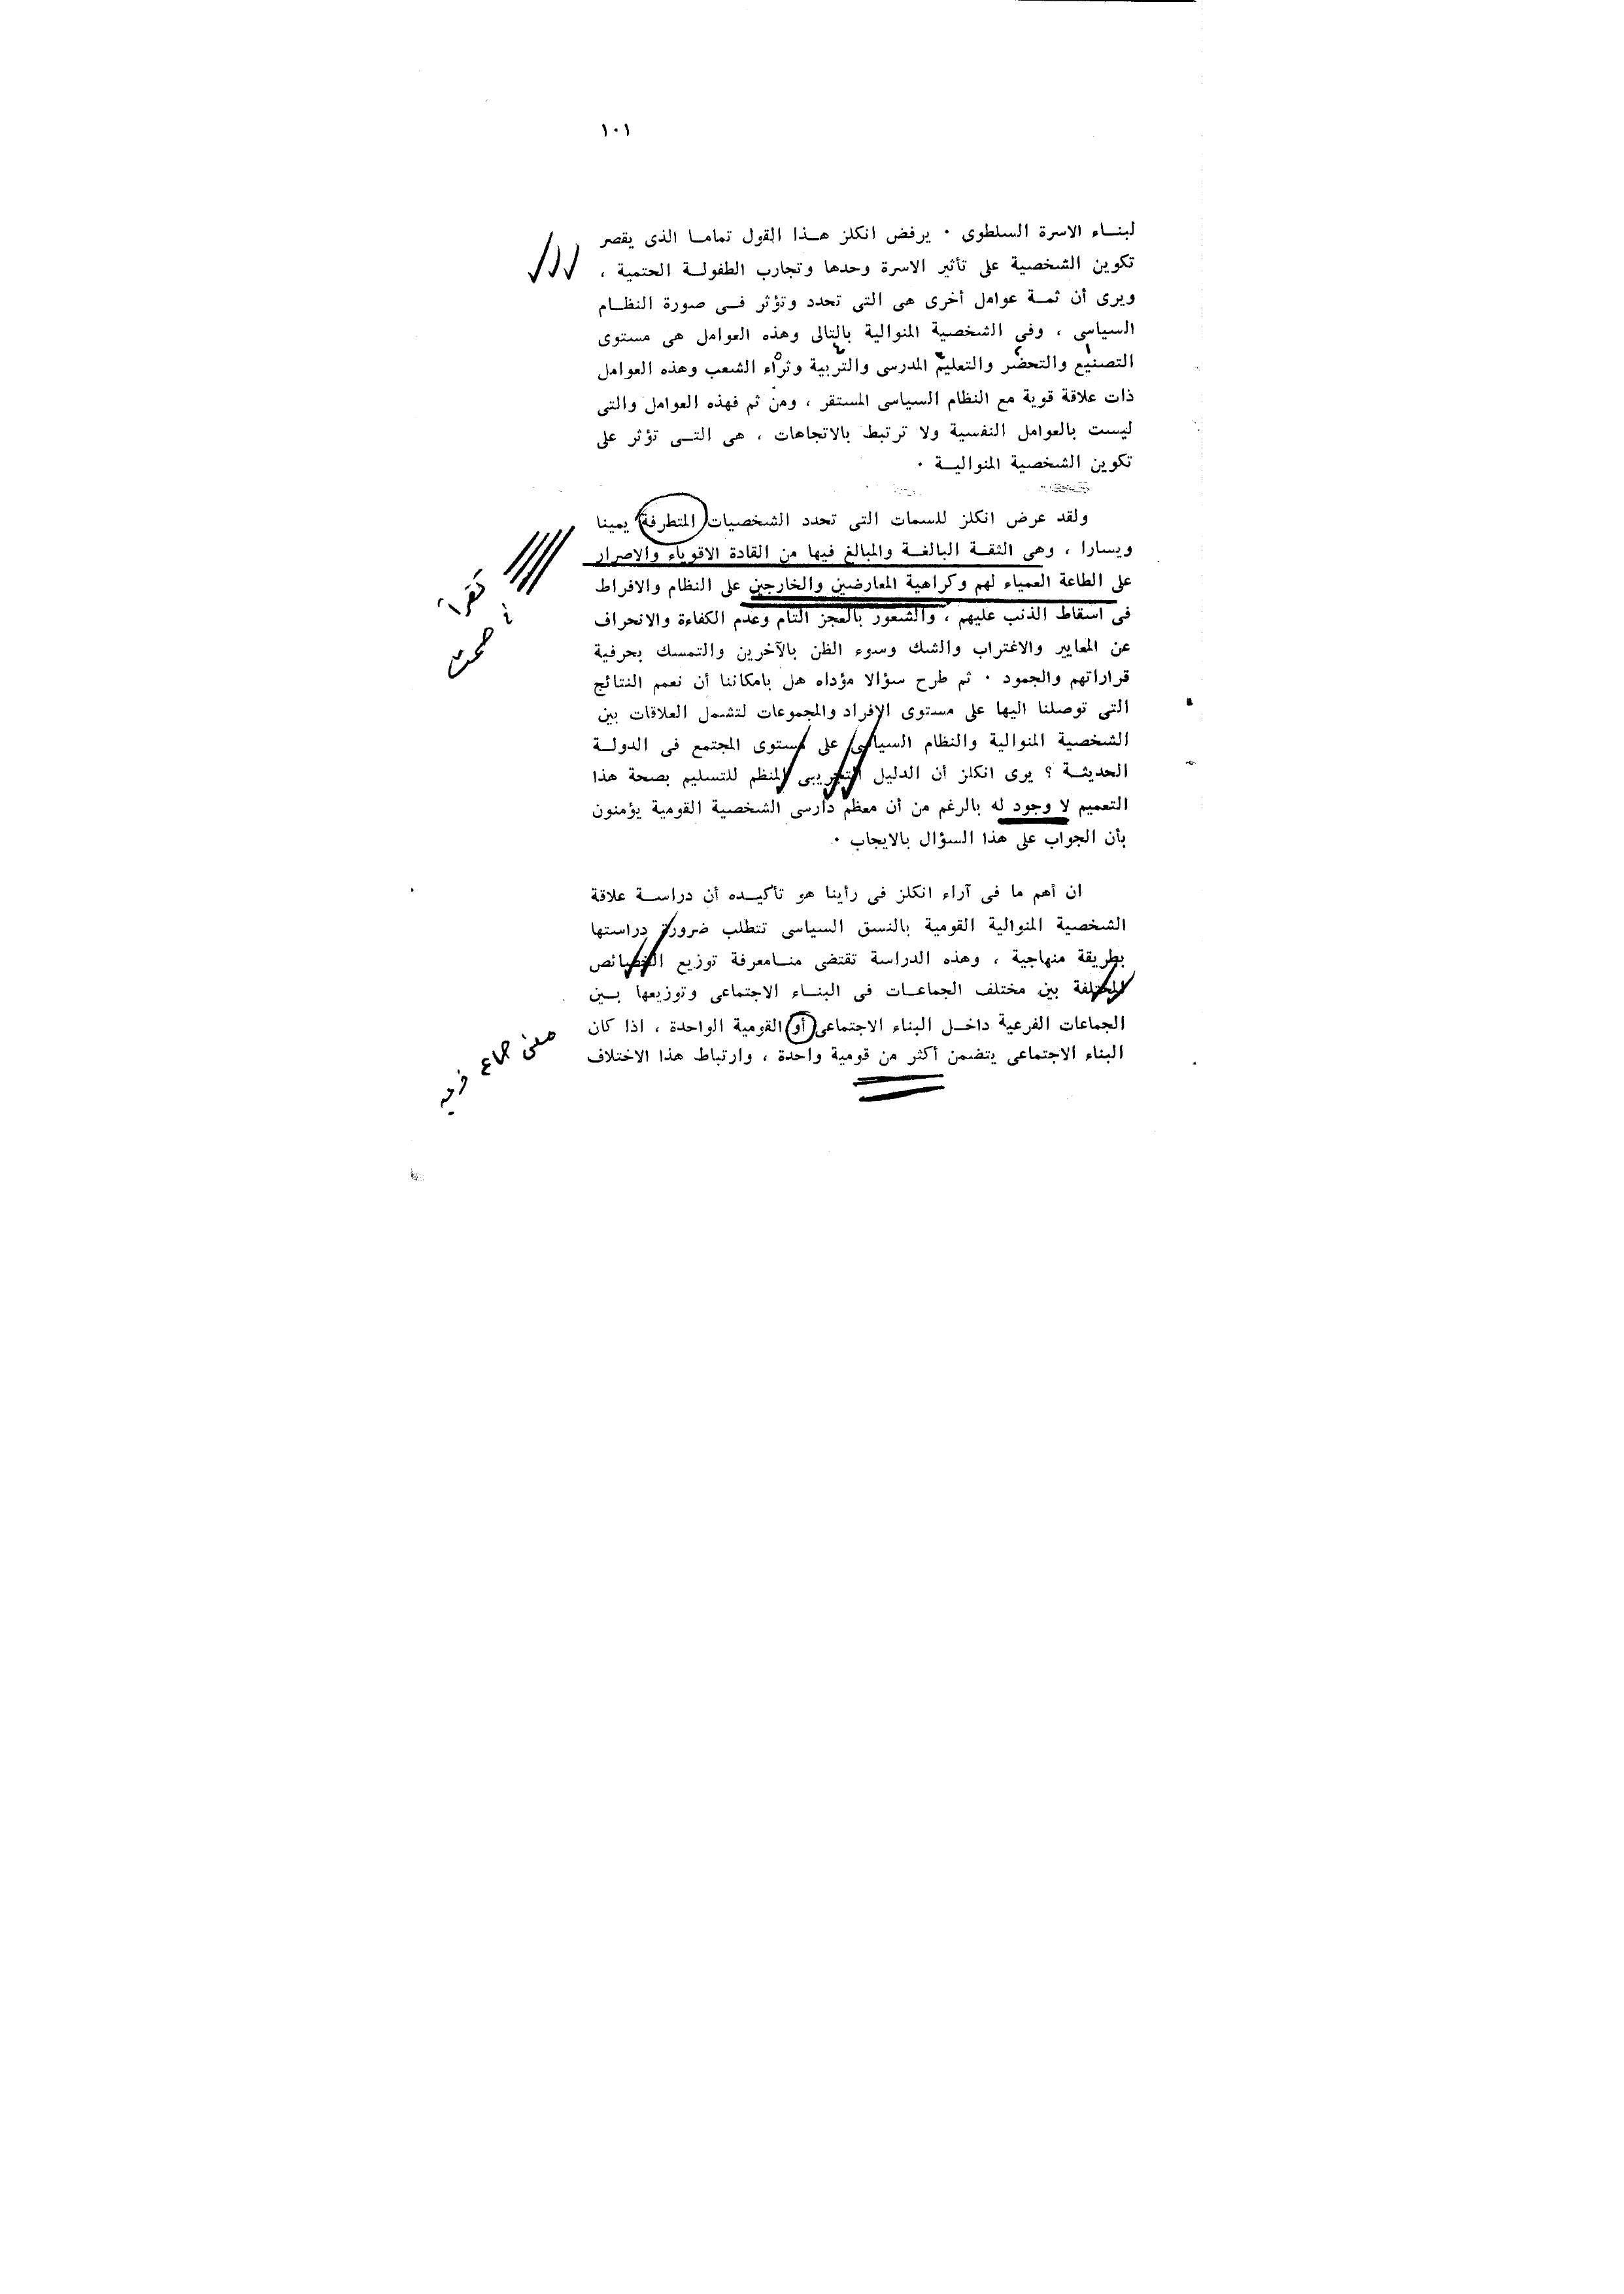 ١٠١
لبنـاء الاسرة السلطوى ٠ يرفض انكلز هـذا القول تمامـا الذى يقصر
تكوين الشخصية على تأثير الاسرة وحدها وتجارب الطفولـة الحتمية ،
ويرى أن ثمـة عوامل أخرى هى التى تحدد وتؤثر فـى صورة النظـام
السياسى ، وفى الشخصية المنوالية بالتالى وهذه العوامل هى مستوى
التصنيع والتحضر والتعليم المدرسى والتربية وثراء الشعب وهذه العوامل
ذات علاقة قوية مع النظام السياسى المستقر ، ومن ثم فهذه العوامل والتى
ليست بالعوامل النفسية ولا ترتبط بالاتجاهات ، هى التـى تؤثر على
تكوين الشخصية المنواليـة ٠
ولقد عرض انكلز للسمات التى تحدد الشخصيات المتطرفة يمينا
ويسارا ، وهى الثقـة البالغـة والمبالغ فيها من القادة الاقوياء والاصرار
على الطاعة العمياء لهم وكراهية المعارضين والخارجين على النظام والافراط
فى اسقاط الذنب عليهم ، والشعور بالعجز التام وعدم الكفاءة والانحراف
عن المعايير والاغتراب والشك وسوء الظن بالآخرين والتمسك بحرفية
قراراتهم والجمود ٠ ثم طرح سؤالا مؤداه هل بامكاننا أن نعمم النتائج
التى توصلنا اليها على مستوى الافراد والمجموعات لتشمل العلاقات بين
الشخصية المنوالية والنظام السياسى على مستوى المجتمع فى الدولـة
الحديثـة ؟ يرى انكلز أن الدليل التجريبى المنظم للتسليم بصحة هذا
التعميم لا وجود له بالرغم من أن معظم دارسى الشخصية القومية يؤمنون
بأن الجواب على هذا السؤال بالايجاب ٠
ان أهم ما فى آراء انكلز فى رأينا هو تأكيـده أن دراسـة علاقة
الشخصية المنوالية القومية بالنسق السياسى تتطلب ضرورة دراستها
بطريقة منهاجية ، وهذه الدراسة تقتضى منـامعرفة توزيع الخصائص
المختلفة بين مختلف الجماعـات فى البنـاء الاجتماعى وتوزيعها بـين
الجماعات الفرعية داخـل البناء الاجتماعى أو القومية الواحدة ، اذا كان
البناء الاجتماعى يتضمن أكثر من قومية واحدة ، وارتباط هذا الاختلاف